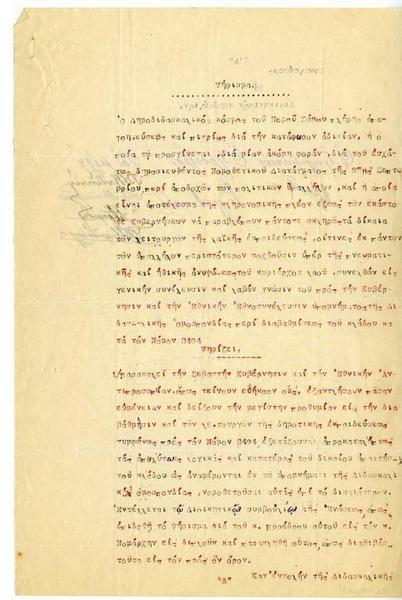 Ψήφισμα.
Ὁ Δημοδιδασκαλικός κόσμος τοῦ Νομοῦ Σάμου πλήρης ἀπα-
γοητεύσεως καί πικρίας διά τήν κατάφωρον ἀδικίαν, ἡ ὁ
ποία τῷ προσγίνεται, διά μίαν ἀκόμη φοράν, διά τοῦ ἐσχά
τως δημοσιευθέντος Νομοθετικοῦ Διατάγματος τῆς 2ας Σεπτεμ
βρίου περί ἀποδοχῶν τῶν πολιτικῶν ὑπαλλήλων, καί ἡ ὁποία
εἶναι ἀποτέλεσμα τῆς κληρονομικῆς πλέον ἕξεως τῶν ἑκάστο
τε Κυβερνήσεων νά παραβλέπουν πάντοτε σκληρῶς τά δίκαια
τῶν λειτουργῶν τῆς λαϊκῆς ἐκπαιδεύσεως, οἵτινες ἐκ πάντων
τῶν ὑπαλλήλων περισσότερον μοχθοῦσιν ὑπέρ τῆς πνευματι-
κῆς καί ἠθικῆς ἀνυψώσεως τοῦ κυριάρχου λαοῦ, συνελθών εἰς
γενικήν συνέλευσιν καί λαβών γνῶσιν τοῦ πρός τήν Κυβέρ-
νησιν καί τήν Ἐθνικήν Ἐθνοσυνέλευσιν ὑπομνήματος τῆς Δι
δασκαλικῆς Ὁμοσπονδίας περί διαβαθμίσεως τοῦ κλάδου κα
τά τόν Νόμον 3404
Ψηφίζει.
1/παρακαλεῖ τήν Σεβαστήν Κυβέρνησιν καί τήν Ἐθνικήν Ἀν-
τιπροσωπείαν, ὅπως τείνουν εὐήκοον οὖς, ἐξαντλήσουν πᾶσαν
εὐμένειαν καί δείξουν τήν μεγίστην προθυμίαν εἰς τήν δια
βάθμησιν καί τῶν λειτουργῶν τῆς δημοτικῆς ἐκπαιδεύσεως
συμφώνως πρός τόν Νόμον 3404, ἐξετάζουσαι ἀπροκαταλήπτως
τάς ἀπολύτως λογικάς καί κατεξοχήν δικαίου ἀπαιτήσεις
τοῦ κλάδου ὡς ἀναφέρονται ἐν τῷ ὑπομνήματι τῆς Διδασκαλι
κῆς ὁμοσπονδίας, νομοθετοῦσαι αὐτάς ἐπί τό δικαιότερον.
Ἐντέλλεται τῷ Διοικητικῷ συμβουλίῳ τῆς Ἑνώσεως, ὅπως
ἐπιδοθῇ τό ψήφισμα διά τοῦ κ. προέδρου αὐτοῦ εἰς τόν κ.
Νομάρχην εἰς διπλοῦν καί παρακληθῇ οὗτος, ὅπως διαβιβάσῃ
τοῦτο εἰς τόν πρός ὅν ὅρον.
Κατ' ἐντολήν τῆς Διδασκαλικῆς